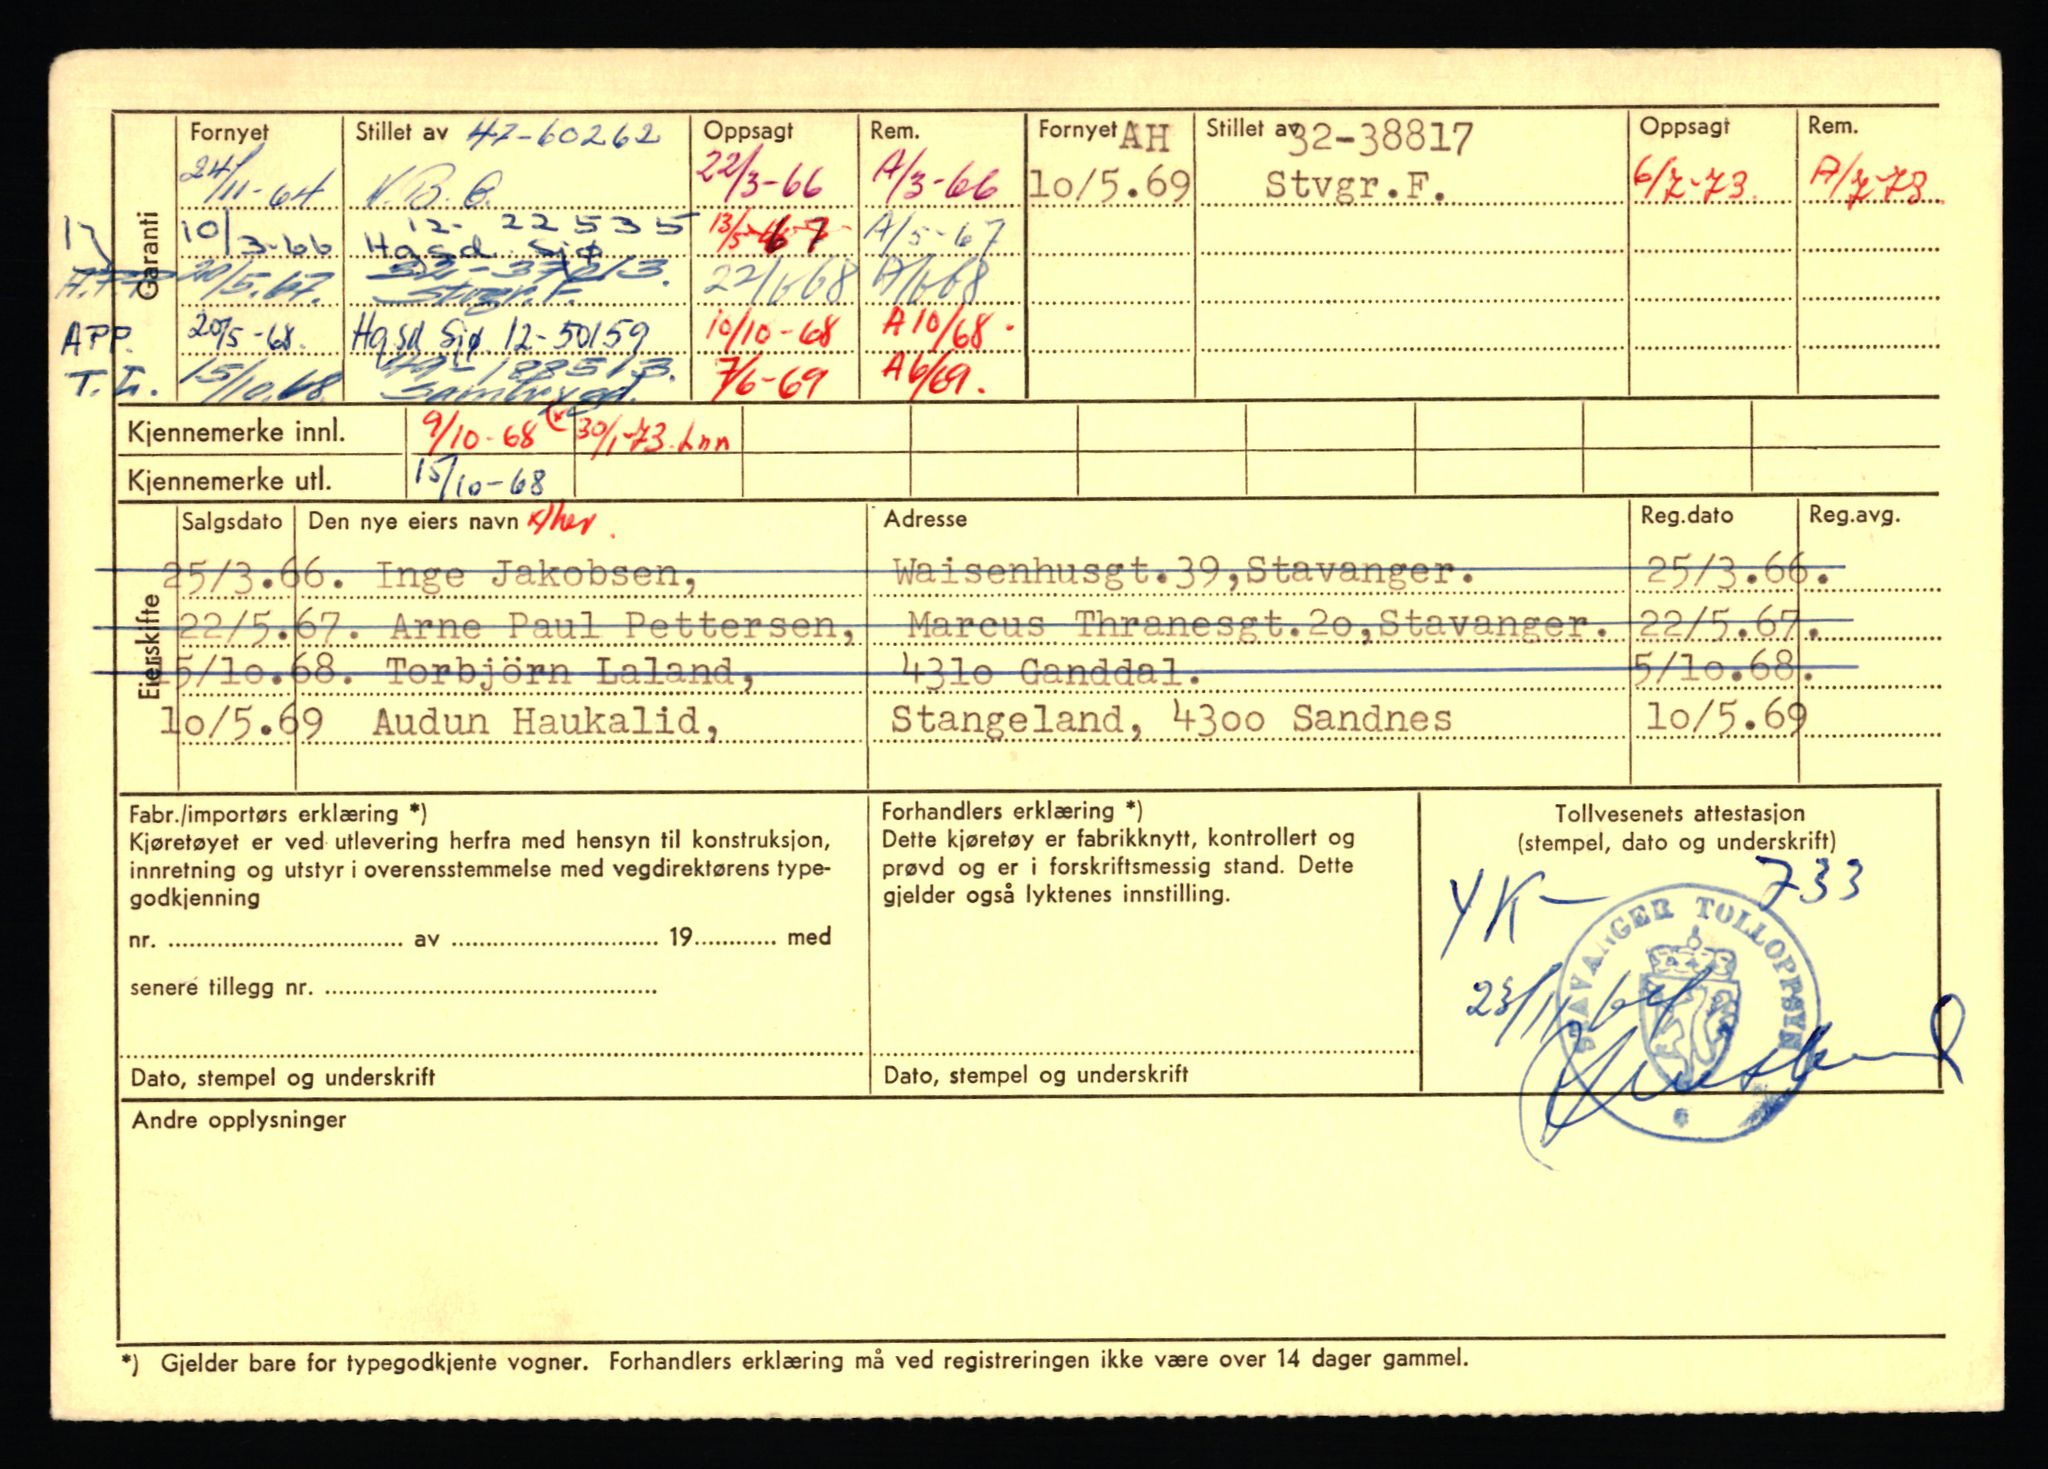 Garanti
Fornyet Stillet av 47-60262 Oppsagt Rem. Fornyet AH Stillet av 32-38817 Oppsagt Rem.
24/11-64 N.B.B. 22/3-66 A/3-66 10/5.69 Stvgr.F. 6/7-73. A/7-73.
10/3-66 12-22535 Hgsd Sjø 13/5-67 A/5-67
20/5.67. Stvgr.F. 22/6 68 A/6 68
APP. 20/5-68. Hgsd Sjø 12-50159 10/10-68 A 10/68.
T.L. 15/10.68. 49-188513. Sambrygd. 7/6-69 A 6/69.
Kjennemerke innl. 9/10-68 (x 30/1-73. Lnn
Kjennemerke utl. 15/10-68
Eierskifte
Salgsdato Den nye eiers navn x) her. Adresse Reg.dato Reg.avg.
25/3.66. Inge Jakobsen, Waisenhusgt.39,Stavanger. 25/3.66.
22/5.67. Arne Paul Pettersen, Marcus Thranesgt.20,Stavanger. 22/5.67.
15/10.68. Torbjörn Laland, 4310 Ganddal. 5/10.68.
10/5.69 Audun Haukalid, Stangeland, 4300 Sandnes 10/5.69
Fabr./importørs erklæring *)
Kjøretøyet er ved utlevering herfra med hensyn til konstruksjon,
innretning og utstyr i overensstemmelse med vegdirektørens type-
godkjenning
nr. .................... av .................... 19............ med
senere tillegg nr. ....................
Dato, stempel og underskrift
Forhandlers erklæring *)
Dette kjøretøy er fabrikknytt, kontrollert og
prøvd og er i forskriftsmessig stand. Dette
gjelder også lyktenes innstilling.
Dato, stempel og underskrift
Tollvesenets attestasjon
(stempel, dato og underskrift)
YK- 733
STAVANGER TOLLOPPSYN
23/11 64
Andre opplysninger
*) Gjelder bare for typegodkjente vogner. Forhandlers erklæring må ved registreringen ikke være over 14 dager gammel.